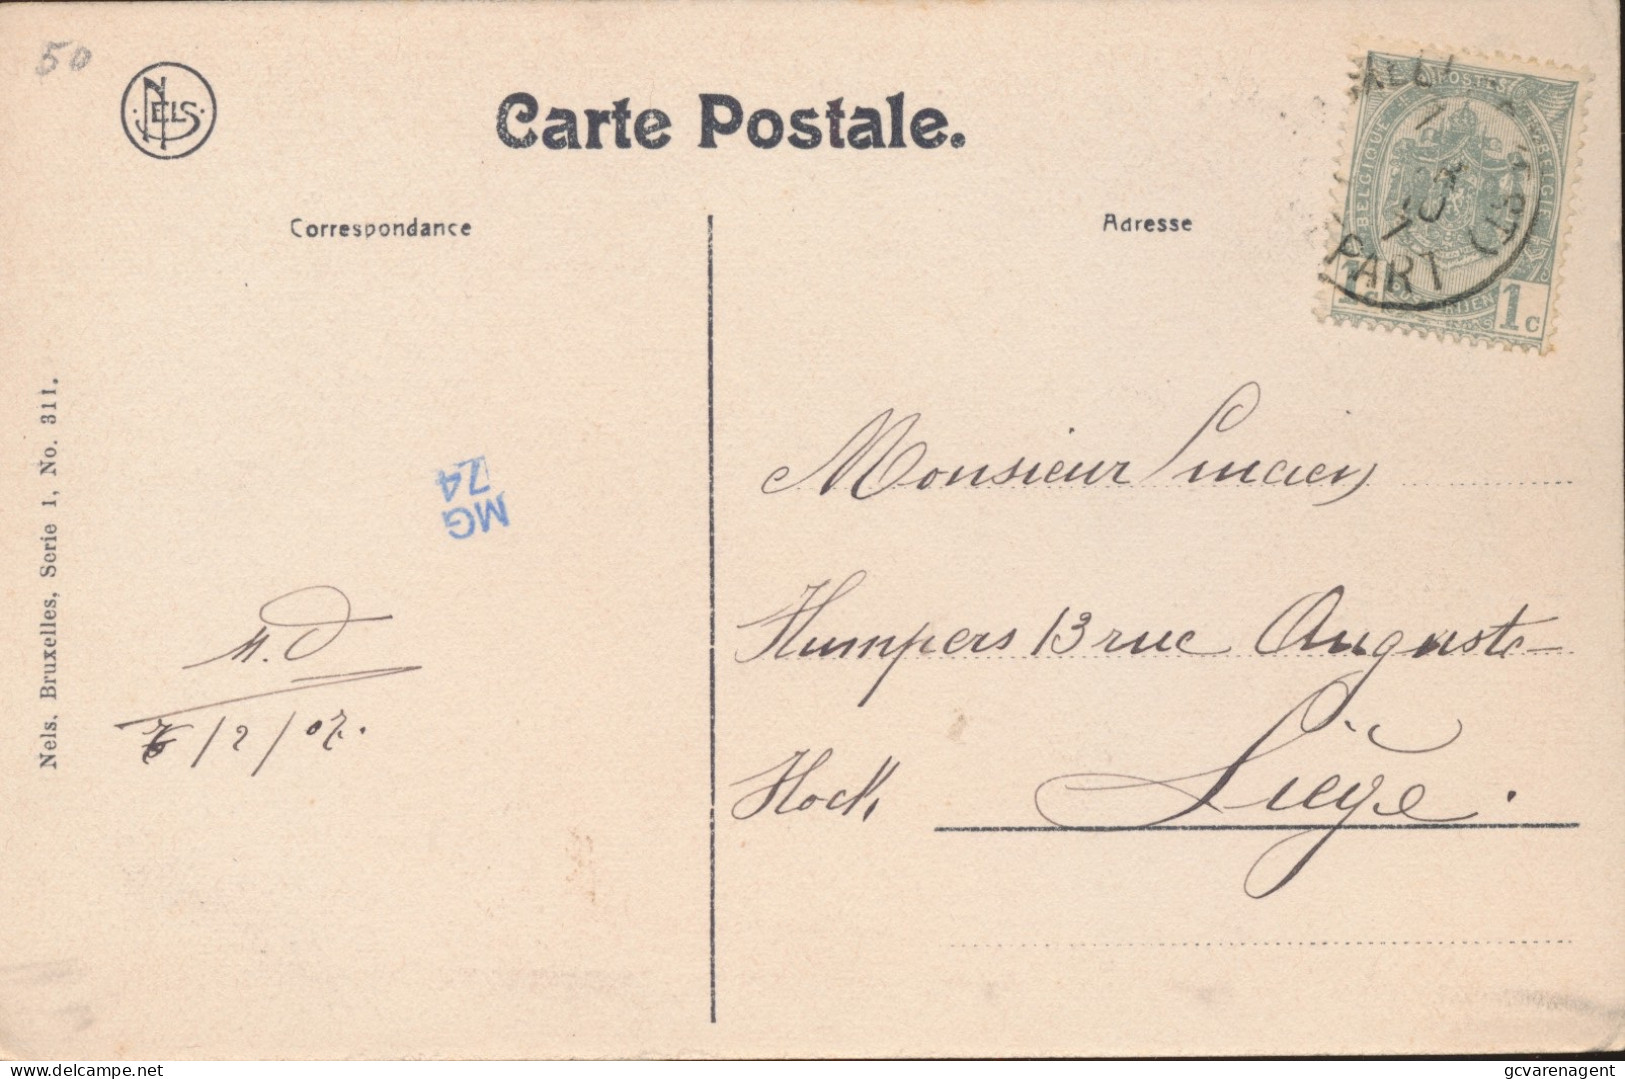 50
NELS
Carte Postale.
Correspondance
Adresse
BELGIQUE POSTES BELGIE
1c 1c
PART (EST)
Nels. Bruxelles, Serie 1, No. 311.
MG
Z4
M.D
/2/07.
Monsieur Lucien
Humpers 13 rue Auguste
Hock, Liège.
delcampe.net
gcvarenagent